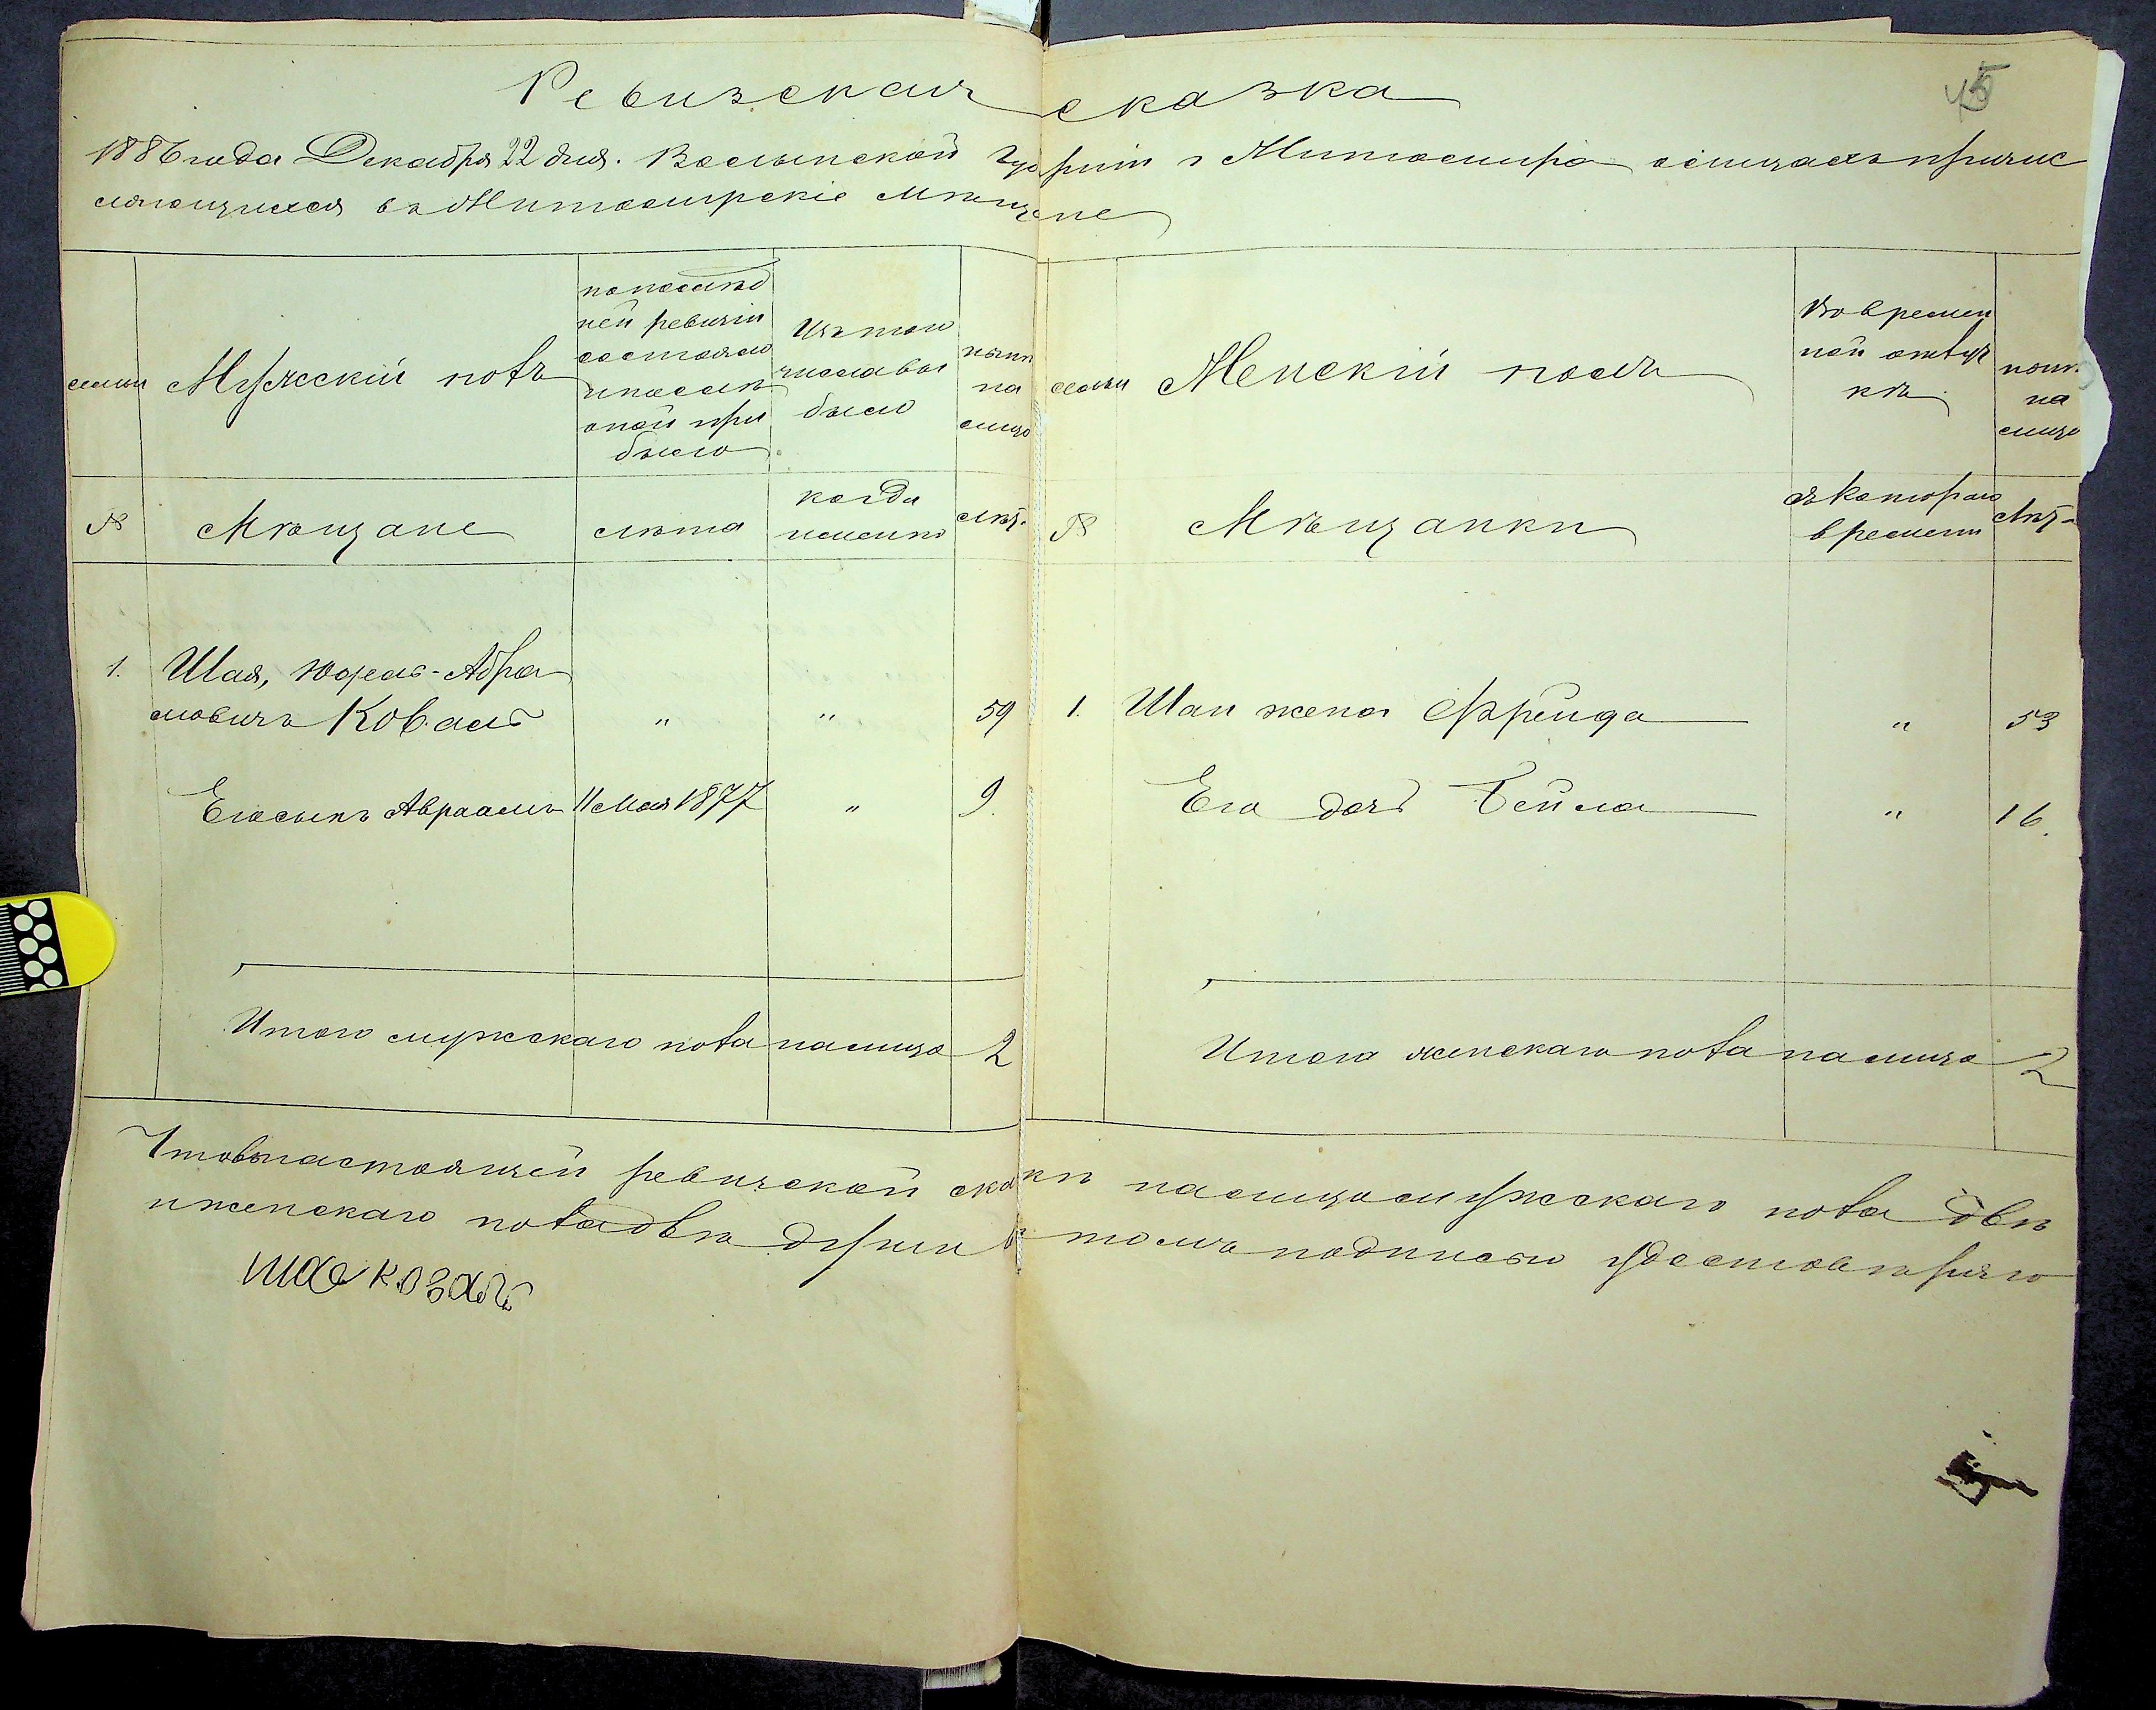 Ревизская сказка
45
1886 года Декабря 22 дня. Волынской губерніи г Житомира о лицахъ причис
ляющихся въ Житомирскіе мѣщане
семьи
Мужескій полъ
по послѣд
ней ревизіи
состояло
и послѣ
оной при
было
Изъ того
числа вы
было
нынѣ
на
лицо
семьи
Женскій полъ
Во времен
ной отлуч
кѣ
нынѣ
на
лицо
№
Мѣщане
лѣта
когда
именно
Лѣт.
№
Мѣщанки
съ котораго
времени
Лѣт.
1. Шая, Юдель-Абра
мовичъ Коваль " " 59
1. Шаи жена Фрейда " 53
Его сынъ Авраамъ 11 мая 1877 " 9.
Его дочь Бейла " 16.
Итого мужскаго пола налицо 2
Итого женскаго пола налицо 2
Что въ настоящей ревизской сказкѣ налицо мужскаго пола двѣ
и женскаго пола двѣ души въ томъ подписью удостовѣряю
шае коваль